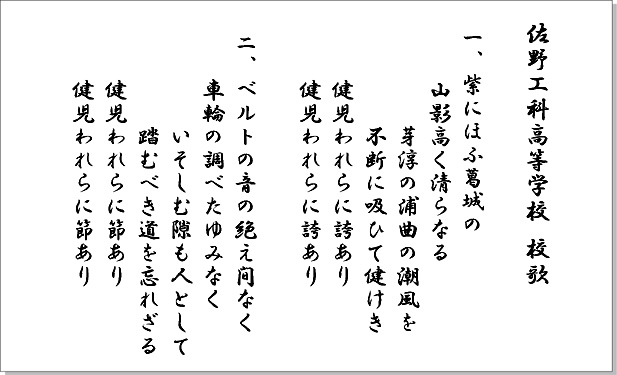 佐野工科高等学校 校歌
一、紫にほふ葛城の
山影高く清らなる
芽渟の浦曲の潮風を
不断に吸ひて健けき
健児われらに誇あり
健児われらに誇あり
二、ベルトの音の絶え間なく
車輪の調べたゆみなく
いそしむ隙も人として
踏むべき道を忘れざる
健児われらに節あり
健児われらに節あり